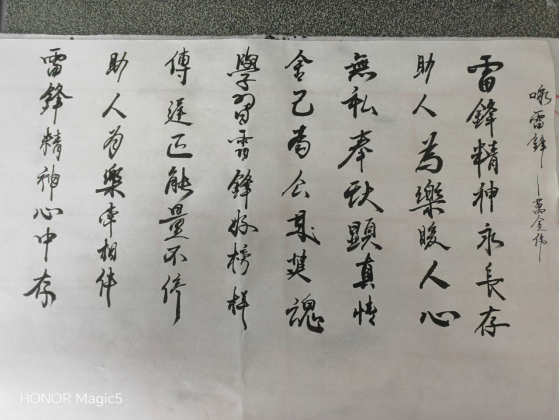 咏雷鋒——萬金偉
雷鋒精神永長存
助人為樂暖人心
無私奉獻顯真情
舍己為公是英魂
學習雷鋒好榜樣
傳遞正能量不停
助人為樂牽相伴
雷鋒精神心中存
HONOR Magic5